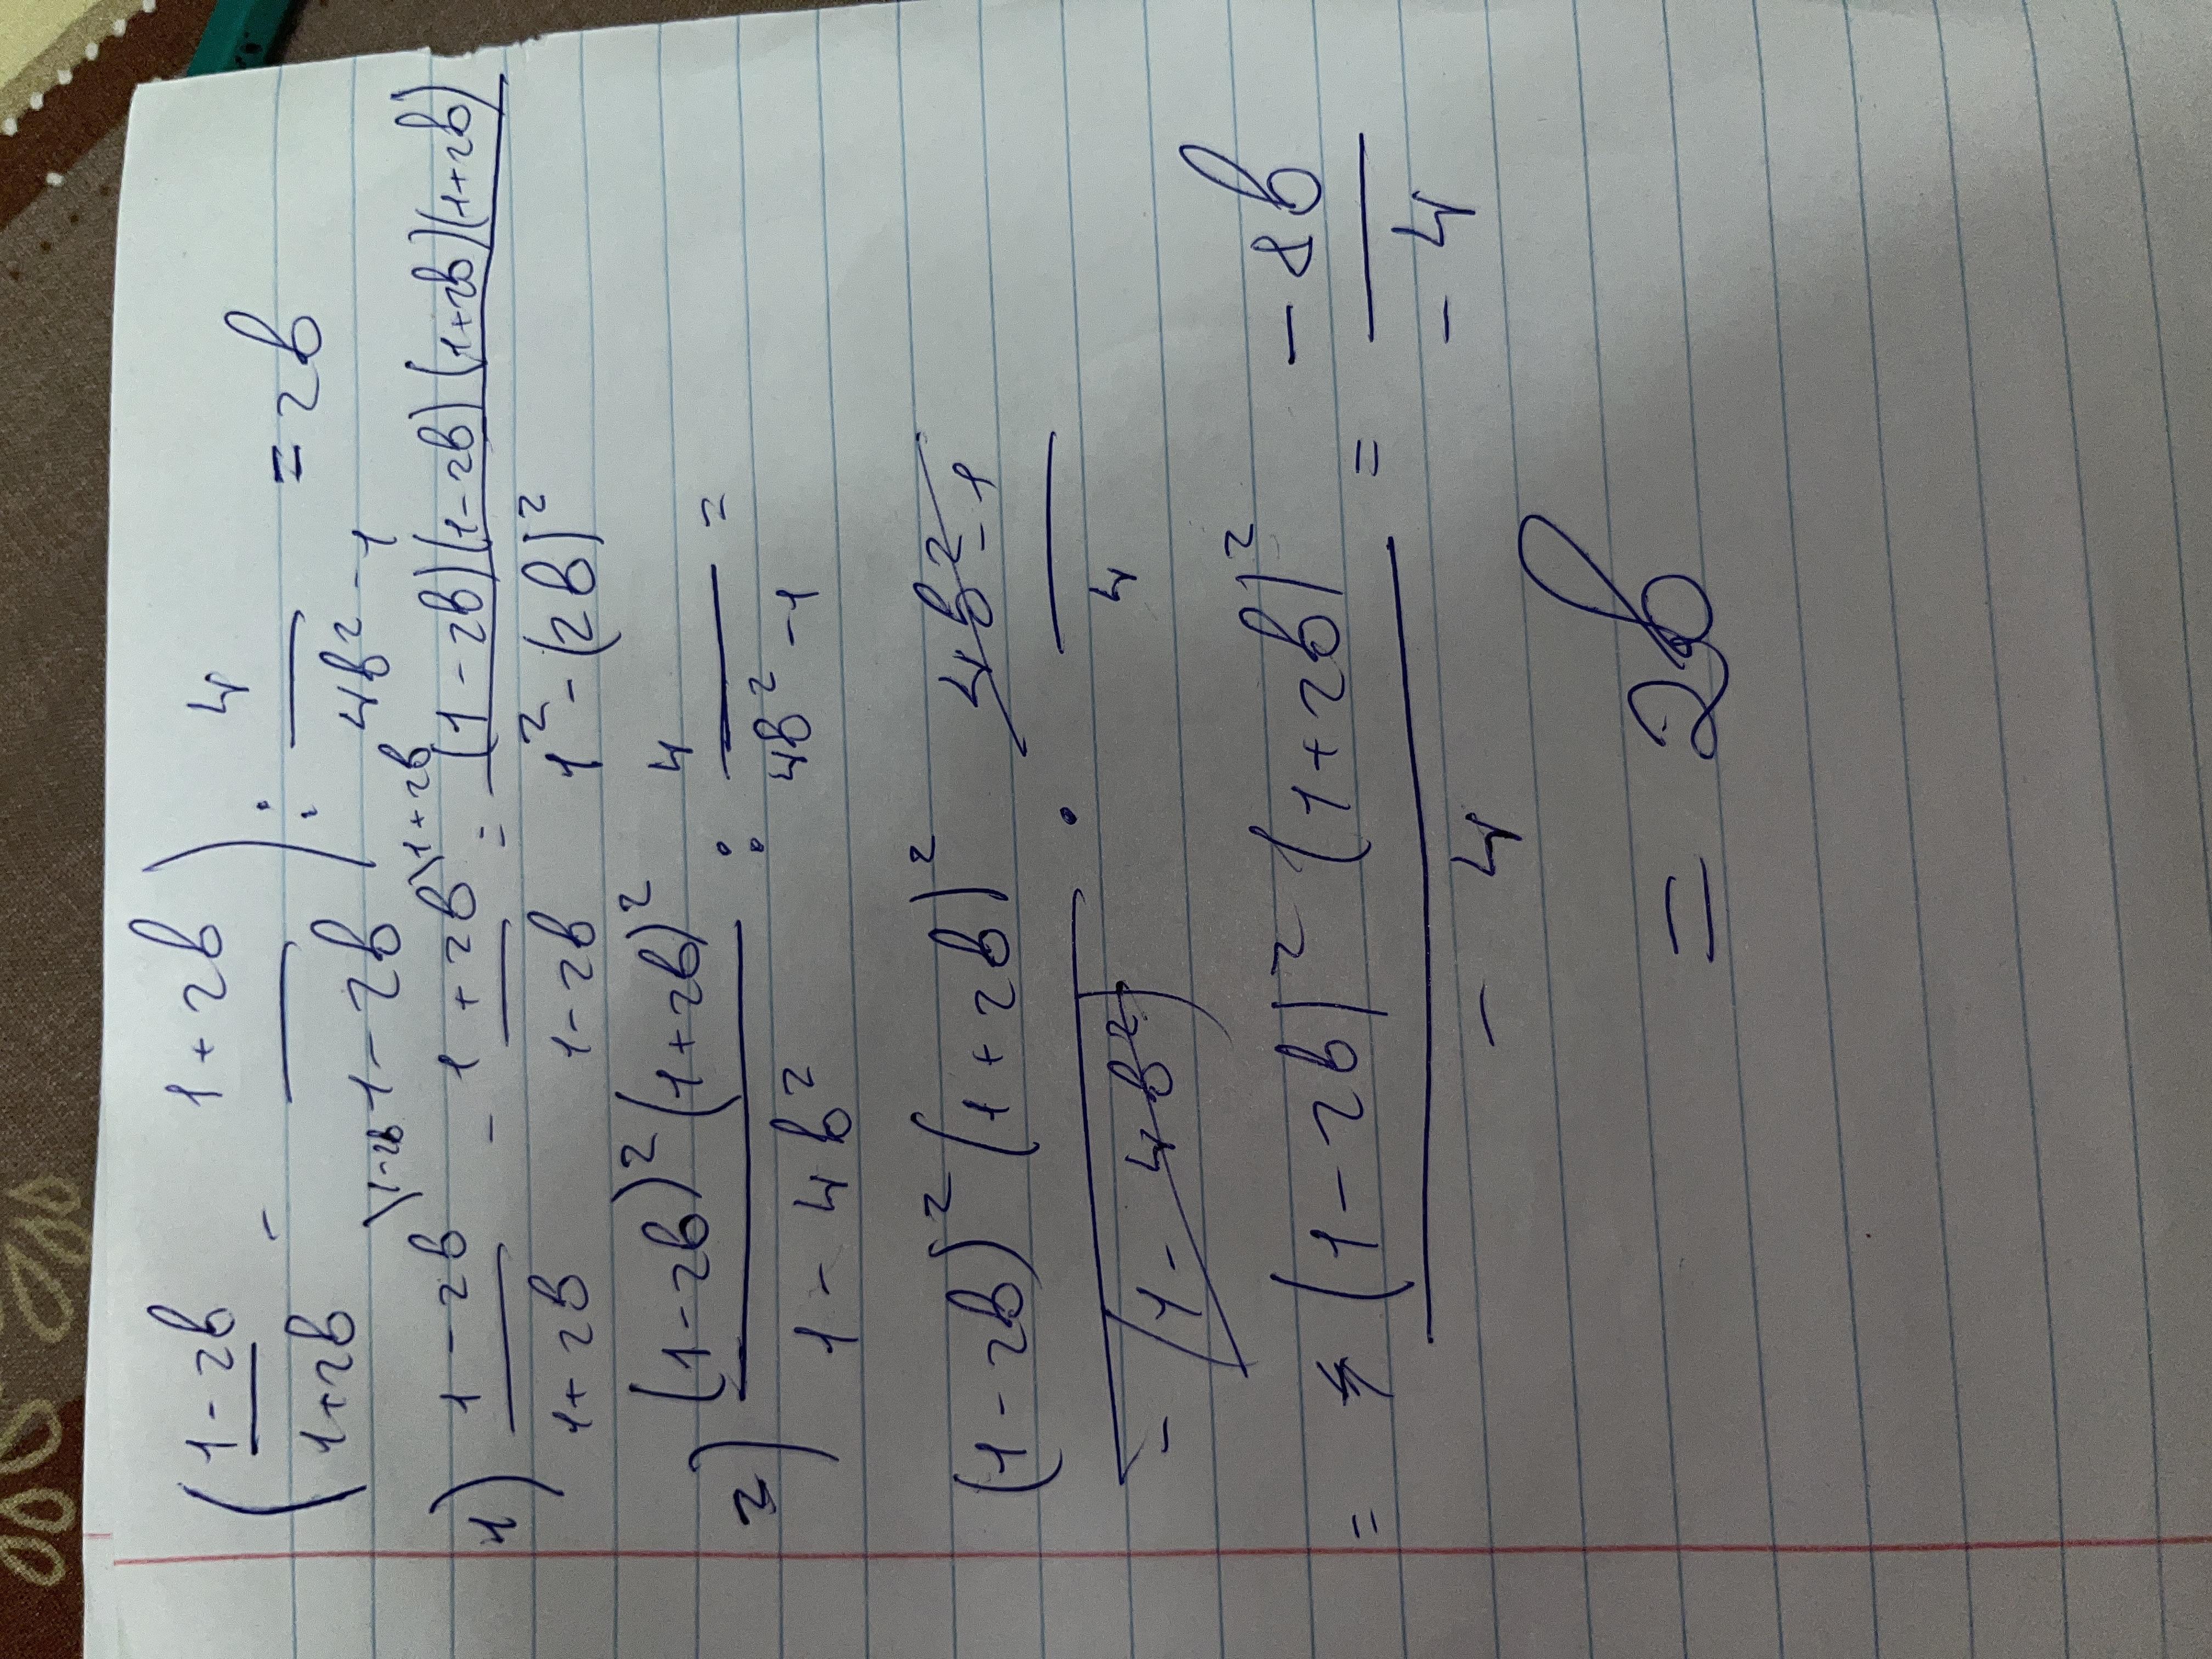 (1-2b/1+2b - 1+2b/1-2b) : 4/4b²-1 = 2b
1) 1-2b\1-2b/1+2b - 1+2b\1+2b/1-2b = (1-2b)(1-2b)(1+2b)(1+2b)/1²-(2b)²
2) (1-2b)²(1+2b)²/1-4b² : 4/4b²-1 =
(1-2b)²(1+2b)²/-(1-4b²) · 4b²-1/4
= (1-2b)²(1+2b)²/-4 = -8b/-4
= 2b